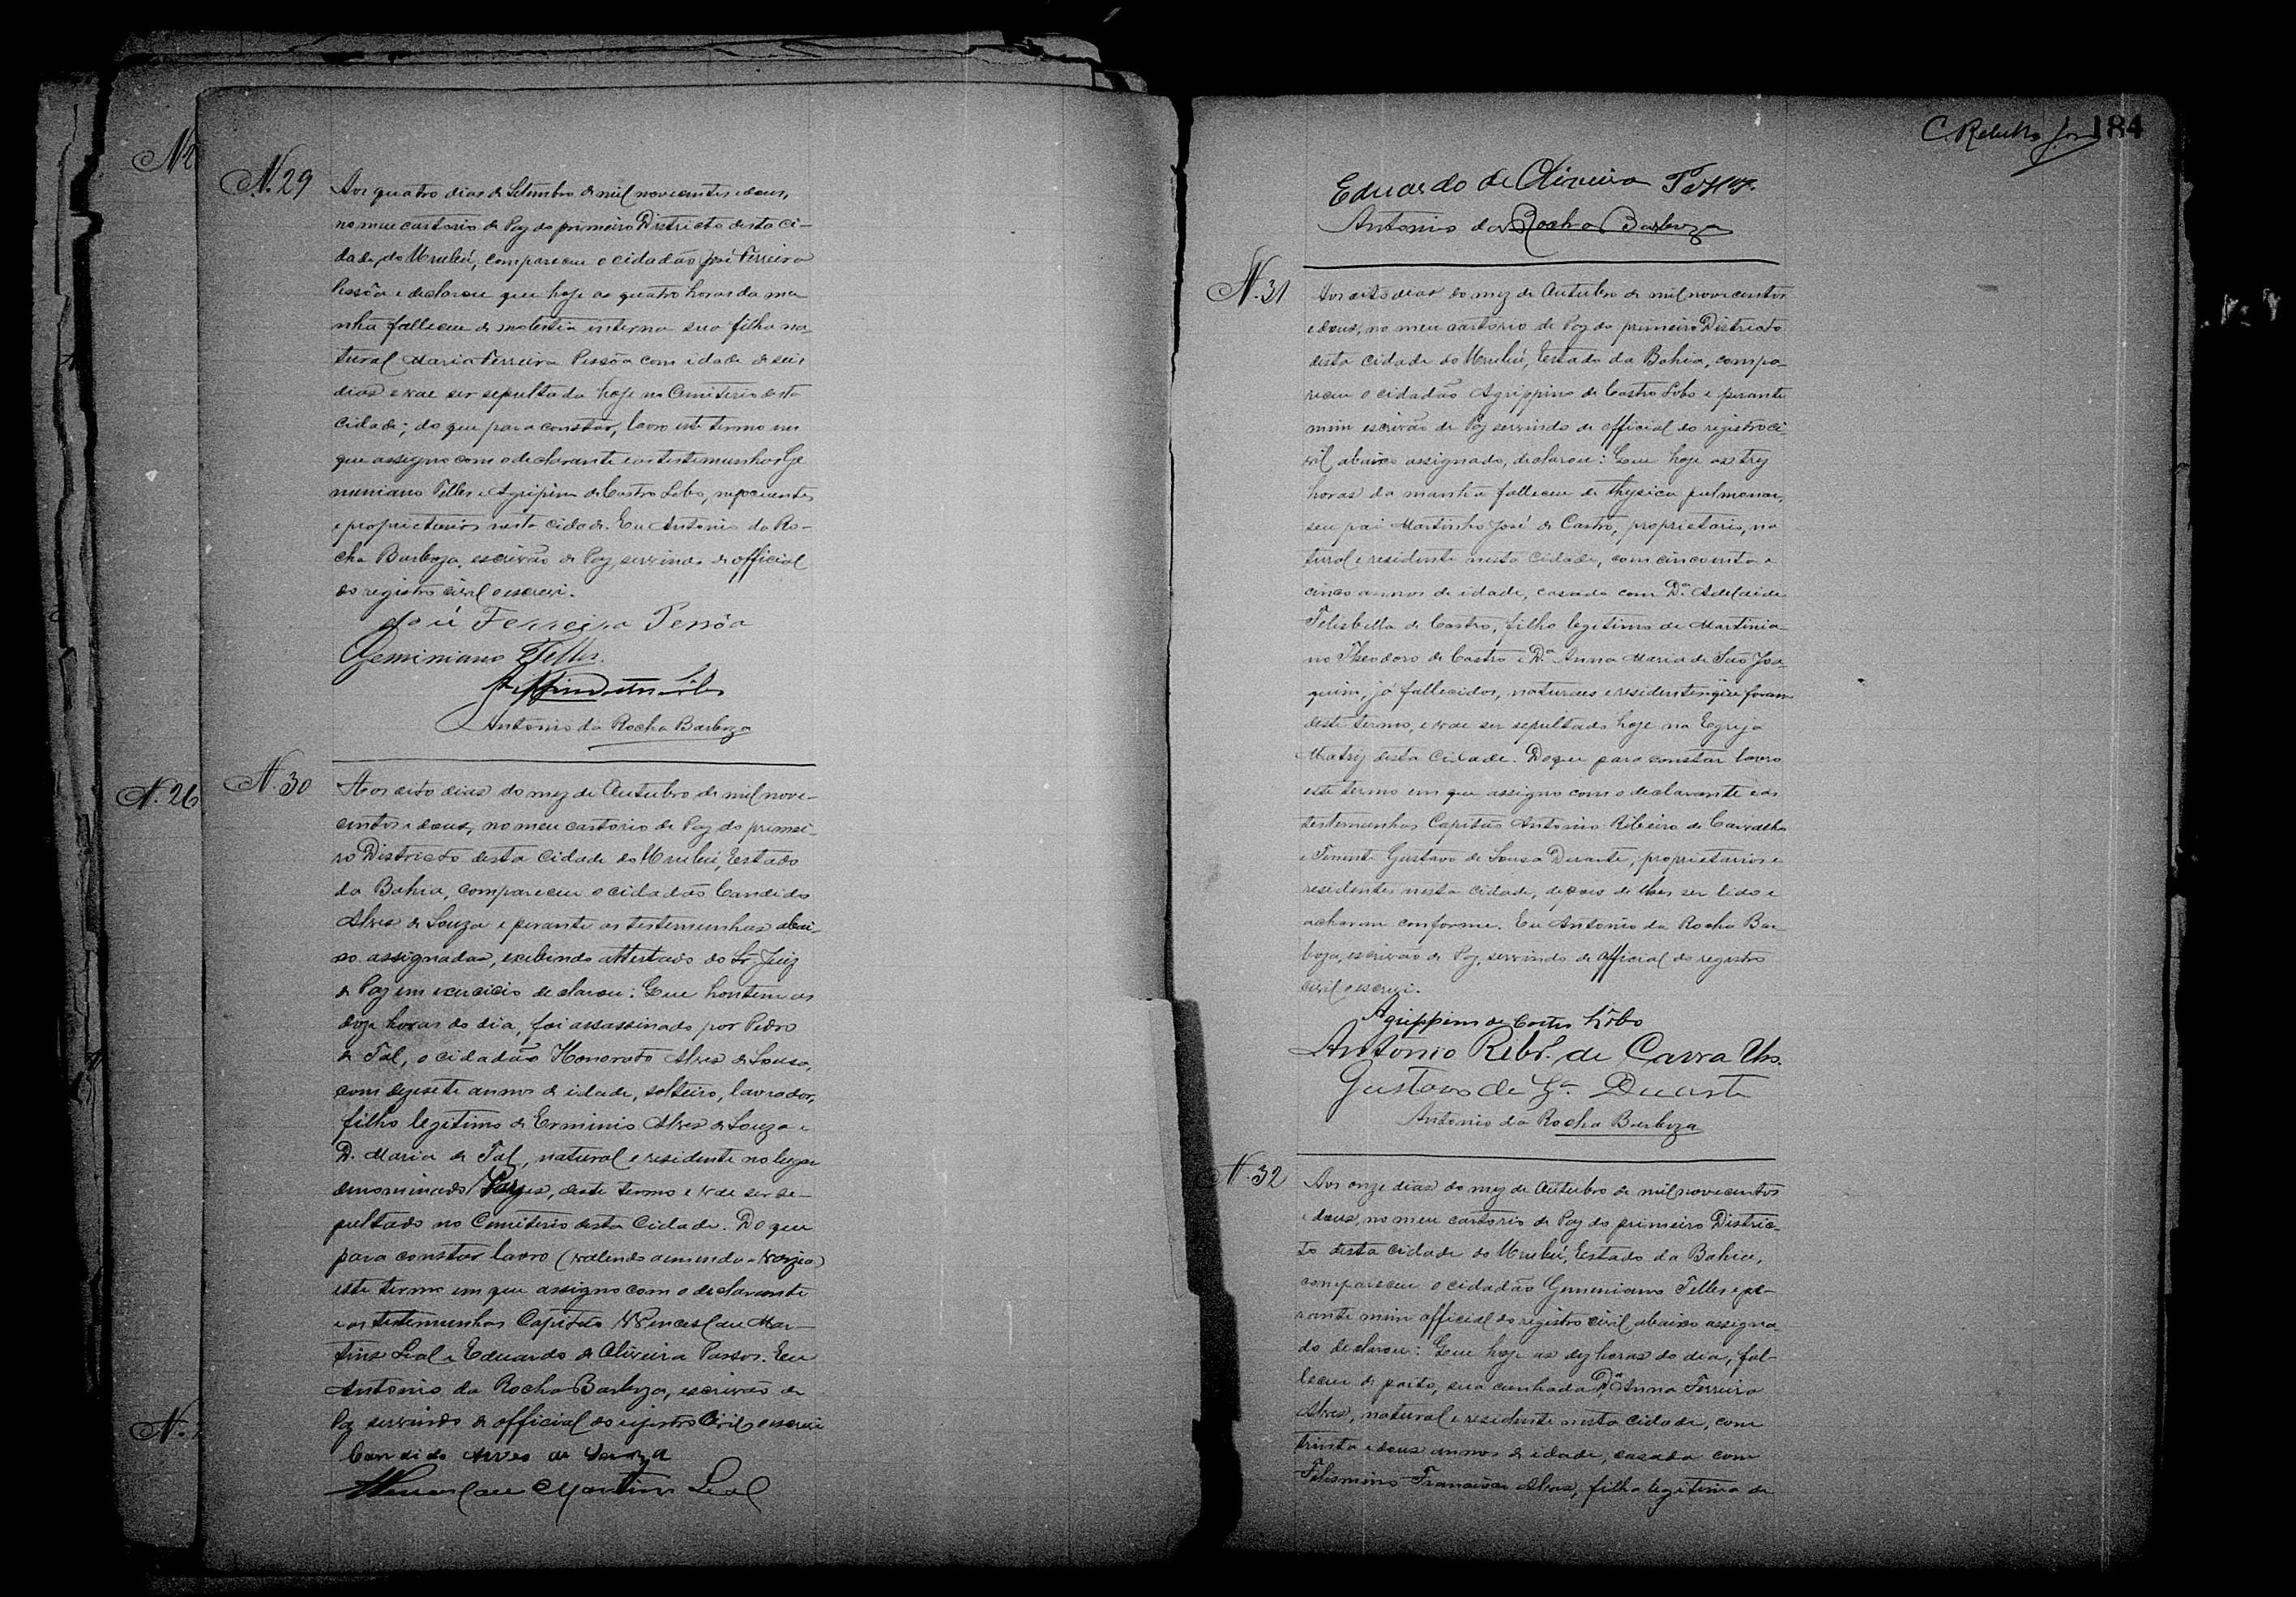 N. 29
Aos quatro dias de Setembro de mil novecentos e dous,
no meu cartorio de Paz do primeiro Districto desta Ci-
dade do Urubú, compareceu o cidadão José Ferreira
Pessôa e declarou que hoje as quatro horas da ma-
nhã falleceu de molestia interna sua filha na-
tural Maria Ferreira Pessôa com idade de seis
dias e vae ser sepultada hoje no Cemiterio desta
Cidade; do que para constar, lavro este termo em
que assigno com o declarante e as testemunhas Ge
meniano Telles e Agripino de Castro Lobo, negociantes
e proprietarios nesta cidade. Eu Antonio da Ro-
cha Barboza, escrivão de Paz, servindo de official
do registro civil o escrevi.
José Ferreira Pessôa
Geminiano Telles.
Antonio da Rocha Barboza
N. 26
N. 30
Aos oito dias do mez de Outubro de mil nove-
centos e dous, no meu cartorio de Paz do primei-
ro Districto desta Cidade do Urubú, Estado
da Bahia, compareceu o cidadão Candido
Alves de Souza e perante as testemunhas abai-
xo assignadas, exibindo attestado do Sr. Juiz
de Paz em exercicio declarou: Que hontem as
doze horas do dia, foi assassinado por Pedro
de Tal, o cidadão Honorato Alves de Souza,
com dezesete annos de idade, solteiro, lavrador,
filho legitimo de Erminio Alves de Souza e
D. Maria de Tal, natural e residente no lugar
denominado deste termo e vae ser se-
pultado no Cemiterio desta Cidade. Do que
para constar lavro (valendo a emenda
este termo em que assigno com o declarante
e as testemunhas Capitão Wenceslau Mar-
tins Leal e Eduardo de Oliveira Passos. Eu
Antonio da Rocha Barboza, escrivão de
Paz servindo de official do registro Civil o escrevi
Candido Alves de Souza
Wenceslau Martins Leal
184
Eduardo de Oliveira
Antonio da Rocha Barboza
N. 31
Aos oito dias do mez de Outubro de mil novecentos
e dous, no meu cartorio de Paz do primeiro Districto
desta cidade do Urubú, Estado da Bahia, compa-
receu o cidadão Agrippino de Castro Lobo e perante
mim escrivão de Paz servindo de official do registro ci-
vil abaixo assignado, declarou: Que hoje as trez
horas da manhã falleceu de thysica pulmonar,
seu pai Martinho José de Castro, proprietario, na
tural e residente nesta Cidade, com cincoenta e
cinco annos de idade, casado com D.ª Adelaide
Felisbella de Castro, filho legitimo de Martinia-
no Theodoro de Castro e D.ª Anna Maria de São Joa-
quim, já fallecidos, naturaes e residentes que foram
deste termo, e vae ser sepultado hoje na Egreja
Matriz desta Cidade. Do que para constar lavro
este termo em que assigno com o declarante e as
testemunhas Capitão Antonio Ribeiro de Carvalho
e Tenente Gustavo de Souza Duarte, proprietarios e
residentes nesta cidade, depois de lhes ser lido e
acharem conforme. Eu Antonio da Rocha Bar
boza, escrivão de Paz, servindo de official do registro
civil o escrevi.
Agrippino de Castro Lôbo
Antonio Ribr.º de Carvalho.
Gustavo de Sz.ª Duarte
Antonio da Rocha Barboza
N. 32
Aos onze dias do mez de Outubro de mil novecentos
e dous, no meu cartorio de Paz do primeiro Distric-
to desta cidade do Urubú, Estado da Bahia,
compareceu o cidadão Gemeniano Telles e pe-
rante mim official do registro civil abaixo assigna-
do declarou: Que hoje as dez horas do dia, fal-
leceu de parto, sua cunhada D.ª Anna Ferreira
Alves, natural e residente nesta cidade, com
trinta e dous annos de idade, casada com
Felismino Francisco Alves, filha legitima de